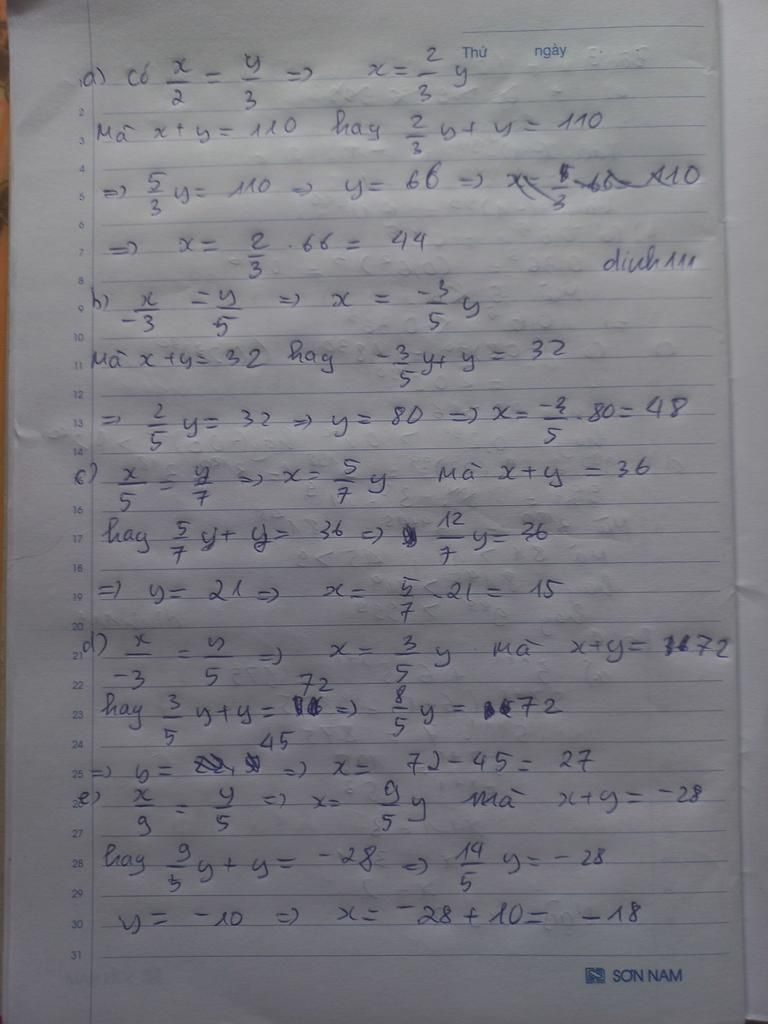 Thứ ngày
a) có x/2 = y/3 => x = 2/3 y
Mà x + y = 110 hay 2/3 y + y = 110
=> 5/3 y = 110 => y = 66 =>
=> x = 2/3 . 66 = 44
b) x/-3 = y/5 => x = -3/5 y
Mà x + y = 32 hay -3/5 y + y = 32
=> 2/5 y = 32 => y = 80 => x = -3/5 . 80 = 48
c) x/5 = y/7 => x = 5/7 y Mà x + y = 36
hay 5/7 y + y = 36 => 12/7 y = 36
=> y = 21 => x = 5/7 . 21 = 15
d) x/-3 = y/5 => x = 3/5 y Mà x + y = 72
hay 3/5 y + y = 72 => 8/5 y = 72
=> y = 45 => x = 72 - 45 = 27
e) x/9 = y/5 => x = 9/5 y Mà x + y = -28
hay 9/5 y + y = -28 => 14/5 y = -28
y = -10 => x = -28 + 10 = -18
SƠN NAM